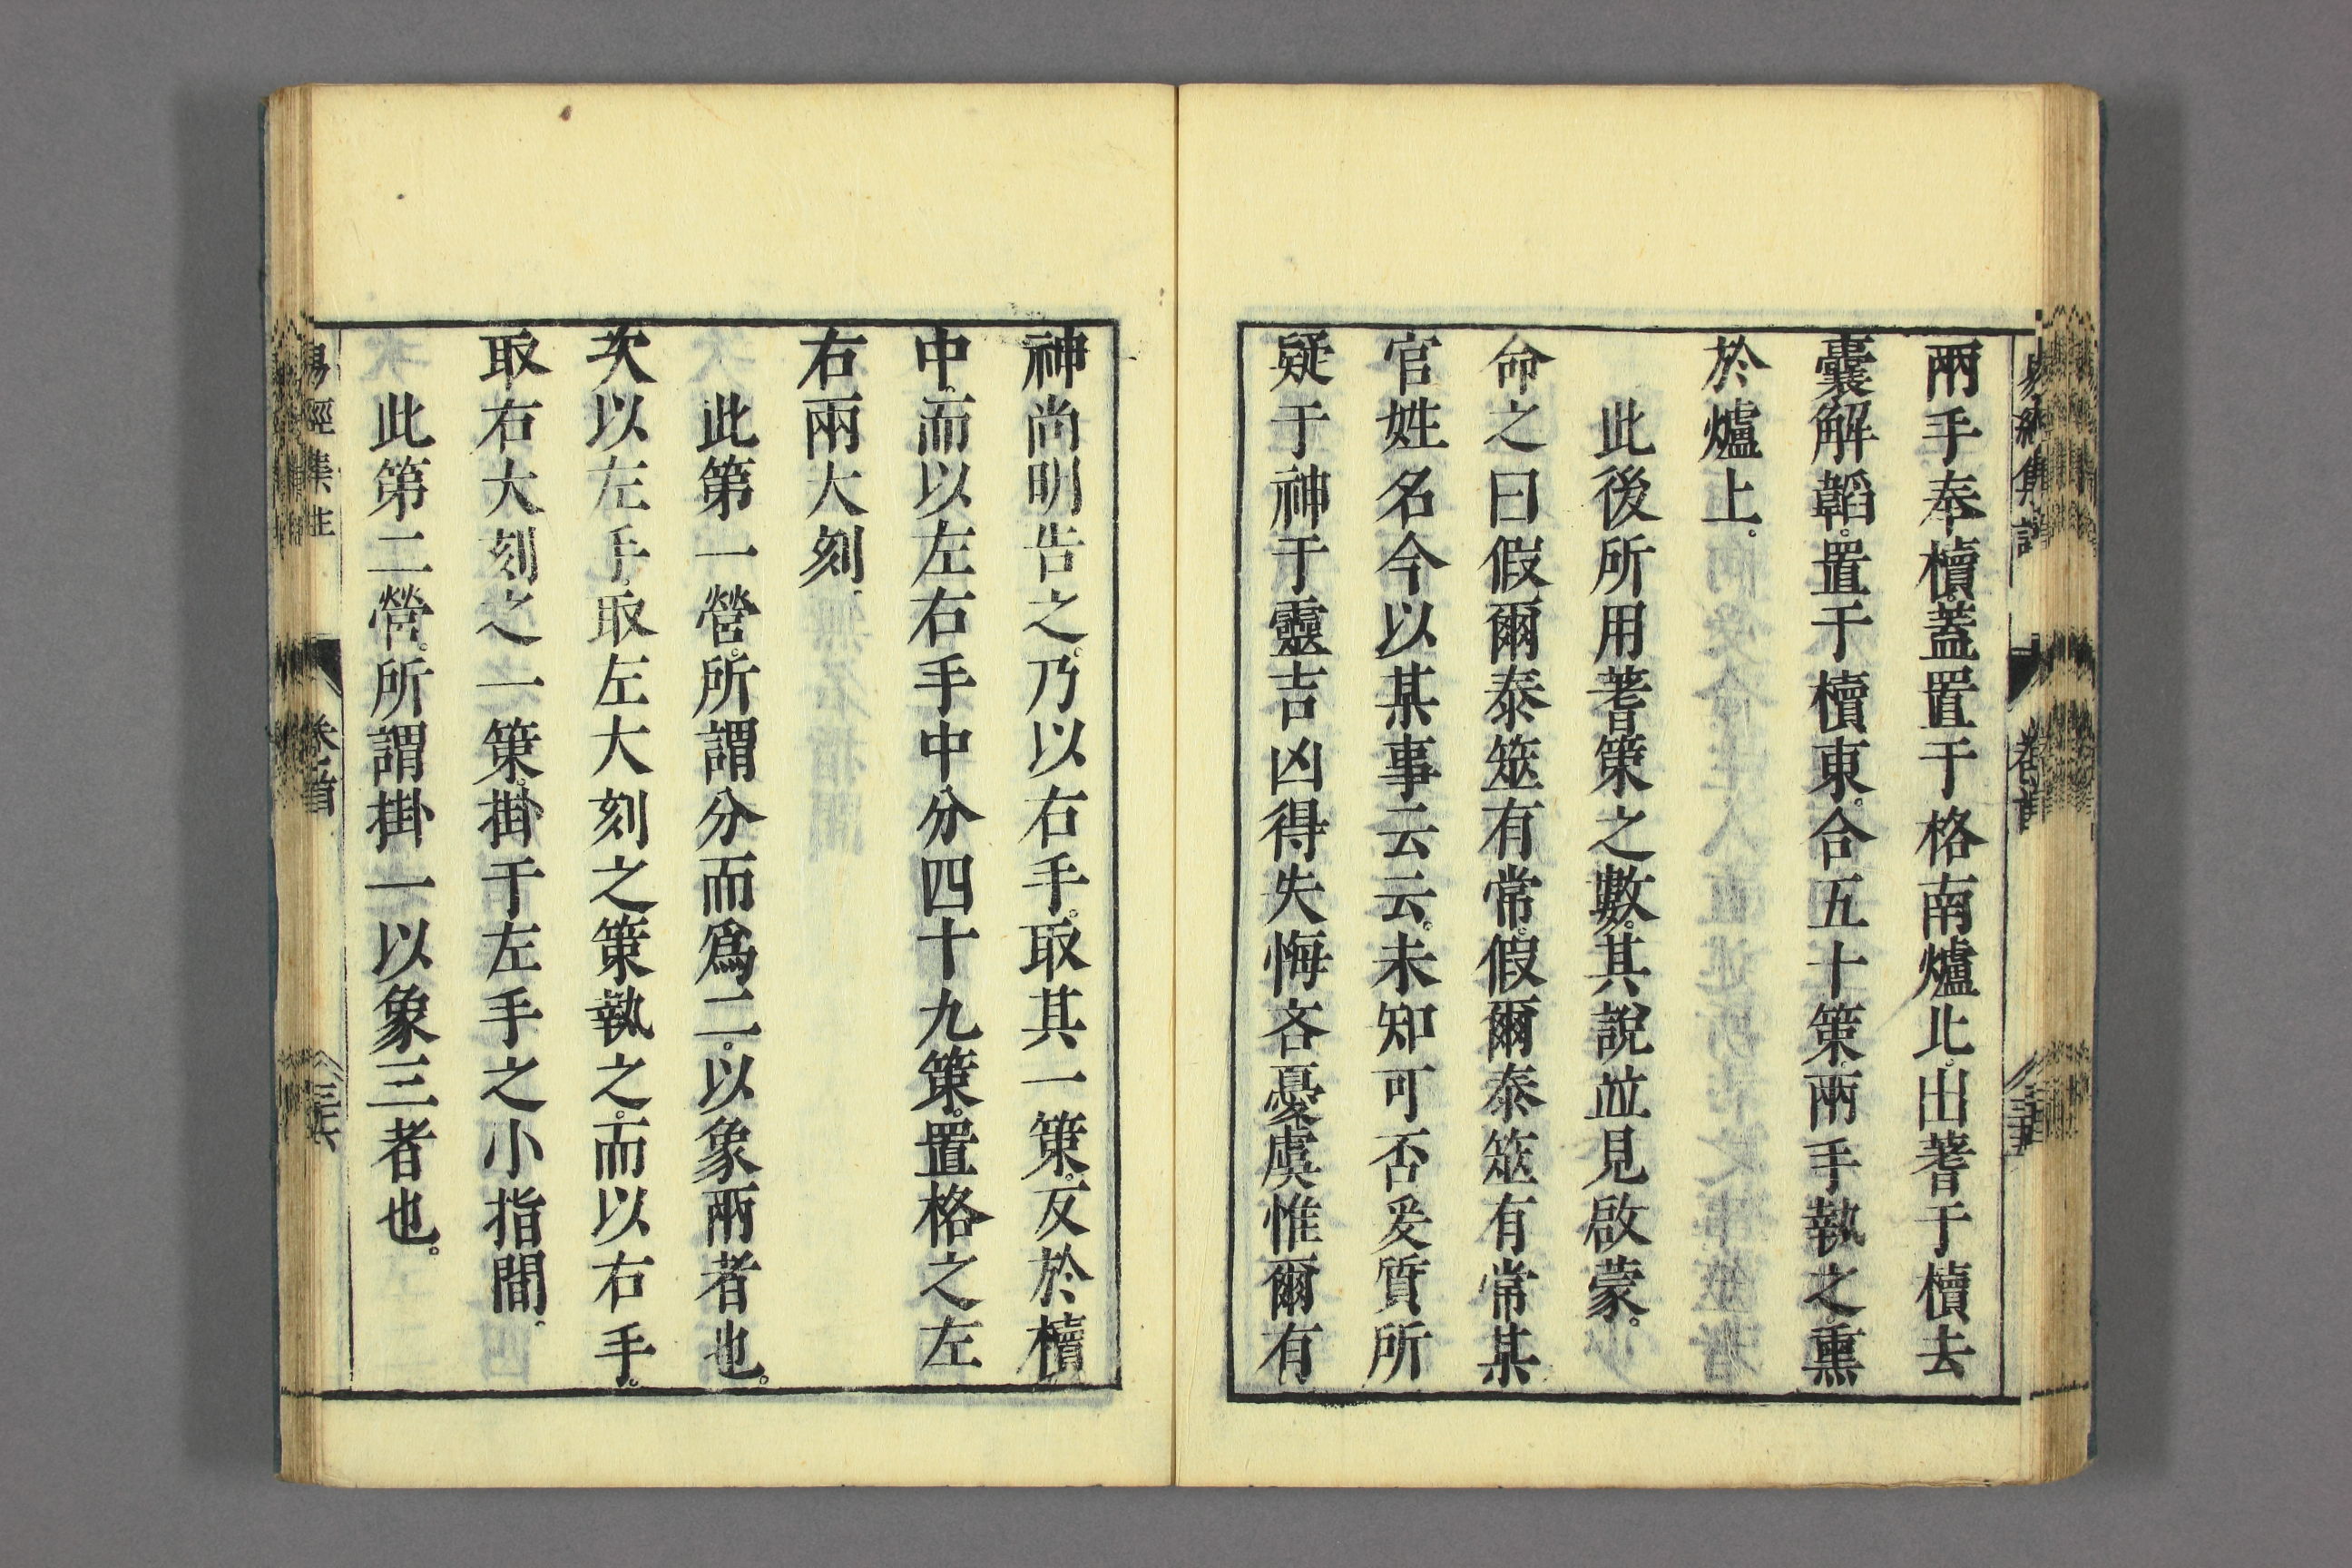 兩手奉櫝。蓋置于格南爐北。出蓍于櫝去
囊解韜。置于櫝東。合五十策。兩手執之。熏
於爐上。
此後所用蓍策之數。其說竝見啟蒙。
命之曰假爾泰筮有常。假爾泰筮有常某
官姓名今以某事云云。未知可否爰質所
疑于神于靈吉凶得失悔吝憂虞惟爾有
神尚明告之。乃以右手。取其一策。反於櫝
中。而以左右手中分四十九策。置格之左
右兩大刻。
此第一營。所謂分而爲二。以象兩者也。
次以左手。取左大刻之策執之。而以右手。
取右大刻之一策。掛于左手之小指間。
此第二營。所謂掛一以象三者也。
易經集註
卷首
三十六